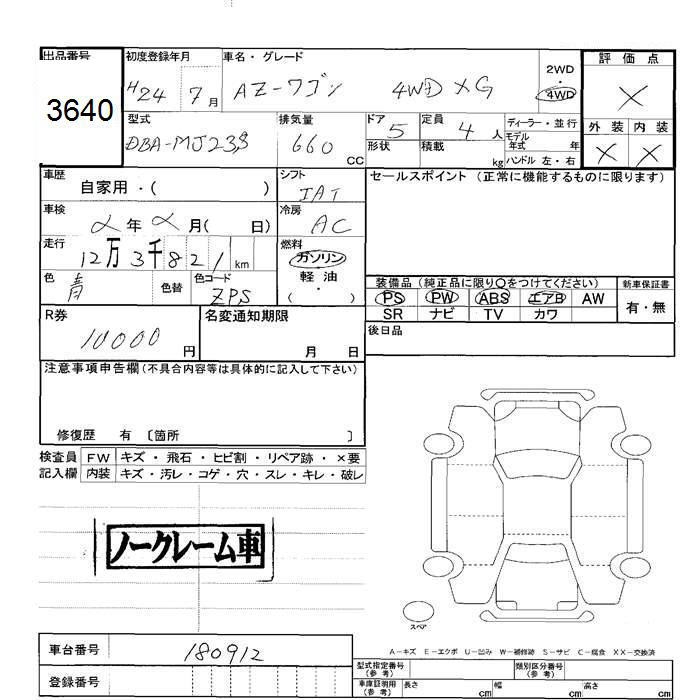 出品番号
3640
初度登録年月
H24 7月
車名・グレード
AZ-ワゴン 4WD XG
2WD
・
4WD
評価点
X
外装 内装
X X
型式
DBA-MJ23S
排気量
660
CC
ドア
5
形状
定員
4人
積載
kg
ディーラー・並行
モデル
年式 年
ハンドル 左・右
車歴
自家用・( )
シフト
IAT
セールスポイント (正常に機能するものに限ります)
車検
年 月( 日)
冷房
AC
走行
12万3千821km
燃料
ガソリン
軽油
・
( )
色
青
色替
色コード
ZPS
装備品(純正品に限り○をつけてください)
PS PW ABS エアB AW
SR ナビ TV カワ
新車保証書
有・無
R券
10000
円
名変通知期限
月 日
後日品
注意事項申告欄(不具合内容等は具体的に記入して下さい)
修復歴 有 〔箇所 〕
検査員
記入欄
FW キズ・飛石・ヒビ割・リペア跡・×要
内装 キズ・汚レ・コゲ・穴・スレ・キレ・破レ
ノークレーム車
スペア
A-キズ E-エクボ U-凹み W-補修跡 S-サビ C-腐食 XX-交換済
車台番号
180912
登録番号
型式指定番号
(参考)
類別区分番号
(参考)
車庫証明用
(参考)
長さ cm 幅 cm 高さ cm